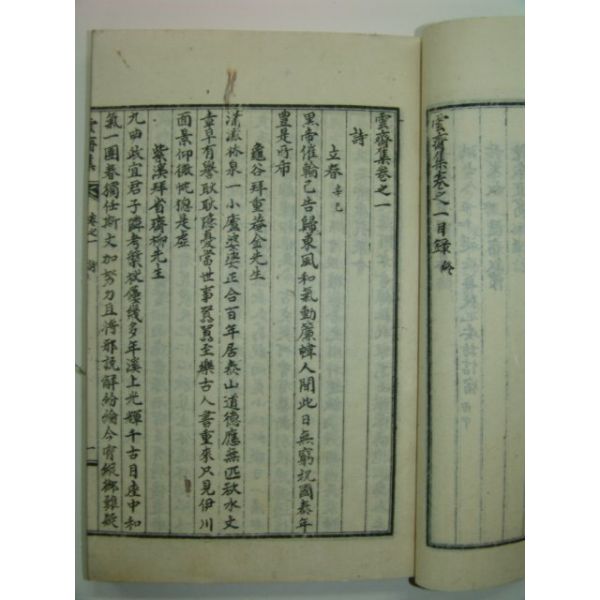 雲齋集卷之一目錄終
雲齋集卷之一
詩
立春 辛巳
黑帝催輪已告歸東風和氣動簾幃人間此日無窮祝國泰年
豊是所希
龜谷拜重菴金先生
瀟灑林泉一小廬婆娑正合百年居泰山道德應無匹秋水文
章早有譽耿耿隱憂當世事囂囂至樂古人書重來只見伊川
面景仰微忱總是虛
紫溪拜省齋柳先生
九曲政宜君子隣考槃幾多年溪上光輝千古月座中和
氣一團春獨任斯文加努力且將邪說解紛綸今有疑
雲齋集 卷之一 詩 一